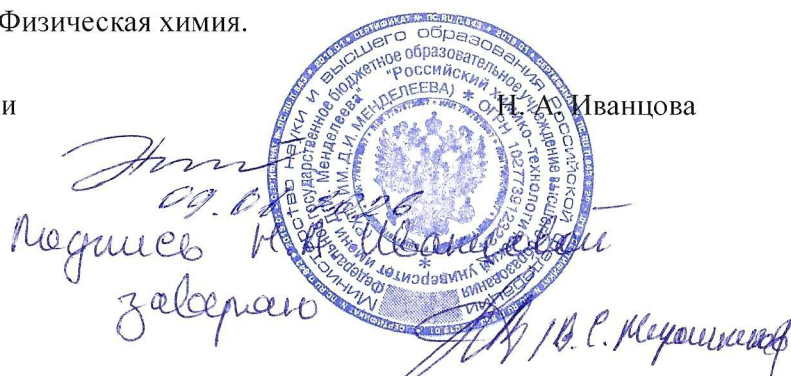 Физическая химия.
и Н. А. Иванцова
Подпись Н А Иванцовой
заверяю
МИНИСТЕРСТВО НАУКИ И ВЫСШЕГО ОБРАЗОВАНИЯ РОССИЙСКОЙ ФЕДЕРАЦИИ
Федеральное государственное бюджетное образовательное учреждение высшего образования
"Российский химико-технологический университет имени Д.И. Менделеева"
(РХТУ ИМ. Д.И. МЕНДЕЛЕЕВА) * ОГРН